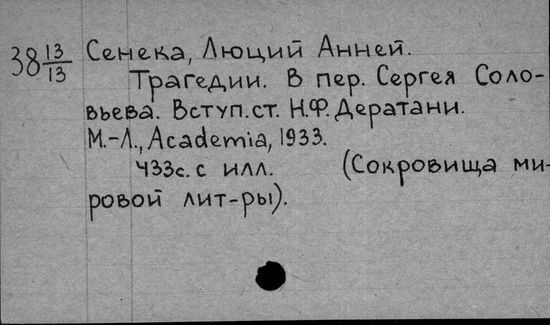 38 13/13 Сенека, Люций Анней.
Трагедии. В пер. Сергея Соло-
вьева. Вступ.ст. Н.Ф. Дератани.
М.-Л., Academia, 1933.
433с. с илл. (Сокровища ми-
ровой лит-ры).